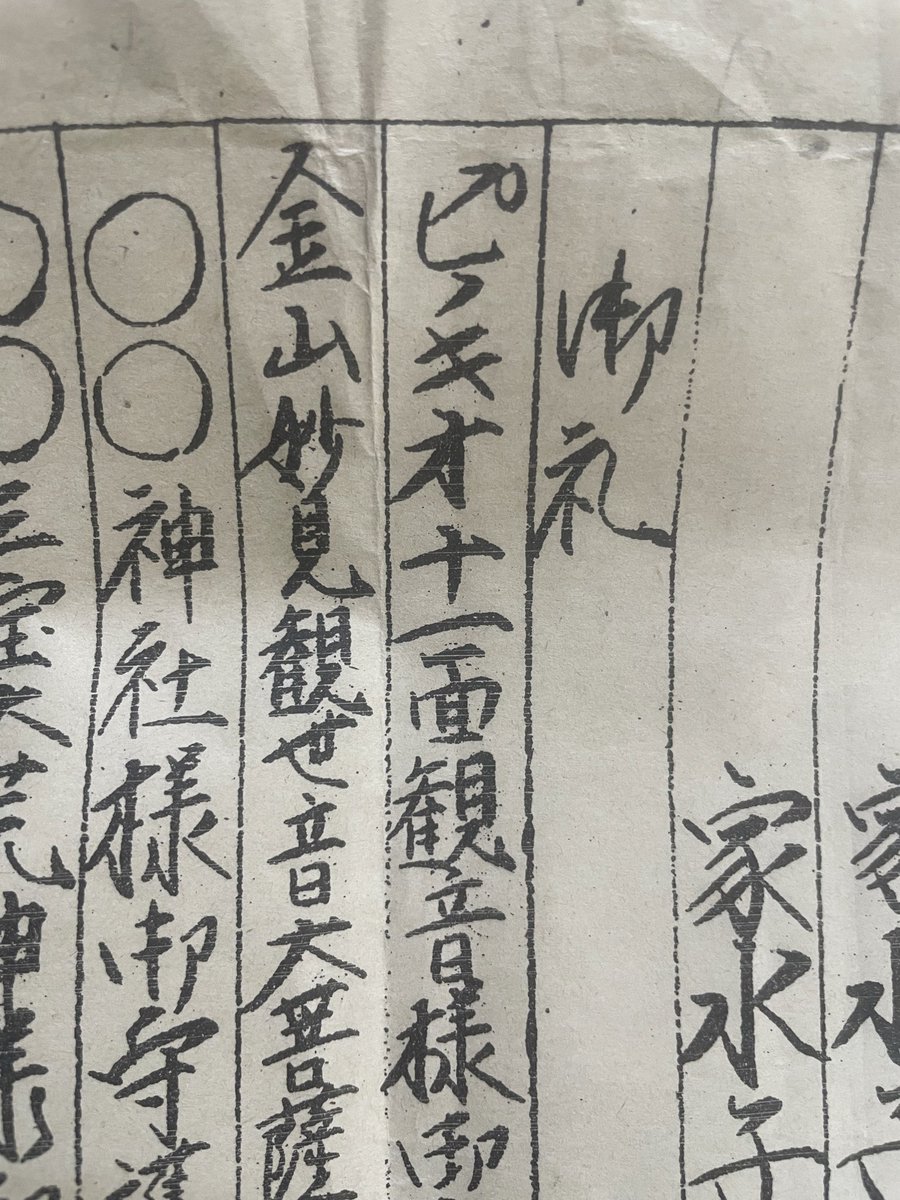 家水子
家水子
御礼
ピノキオ十一面観音様御
金山妙見観世音大菩薩
〇〇神社様御守護
〇〇三宝大荒神様